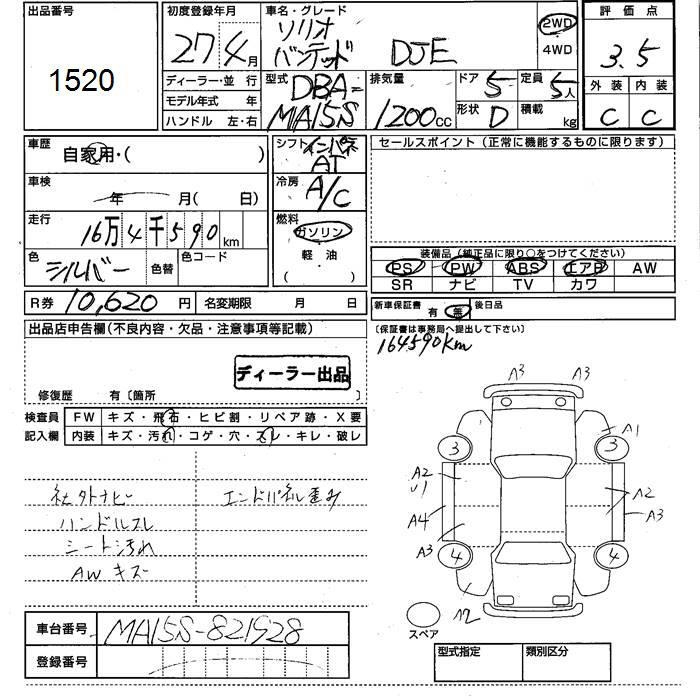 出品番号
1520
初度登録年月
27年4月
車名・グレード
ソリオ
バンデット DJE
2WD
4WD
評価点
3.5
ディーラー・並行
モデル年式 年
ハンドル 左・右
型式
DBA-
MA15S
排気量
1200cc
ドア 5
形状 D
定員 5人
積載 kg
外装 内装
C C
車歴
自家用・( )
シフト インパネ
AT
セールスポイント (正常に機能するものに限ります)
車検
年 月( 日)
冷房
A/C
走行
16万4千590km
燃料
ガソリン
軽・油
( )
色
シルバー 色替
色コード
装備品(純正品に限り○をつけてください)
PS PW ABS エアB AW
SR ナビ TV カワ
R券 10,620円 名変期限 月 日
新車保証書 有 無 後日品
(保証書は事務局へ提出して下さい)
164590km
出品店申告欄(不良内容・欠品・注意事項等記載)
ディーラー出品
修復歴 有〔箇所 〕
検査員
記入欄
FW キズ・飛石・ヒビ割・リペア跡・X要
内装 キズ・汚れ・コゲ・穴・スレ・キレ・破レ
社外ナビ エンドパネル歪み
ハンドルスレ
シート汚れ
AWキズ
A3 A3
A1
3 3
A2
A2
A4 A3
A3
4 4
A2
スペア
車台番号 MA15S-821928
登録番号
型式指定 類別区分